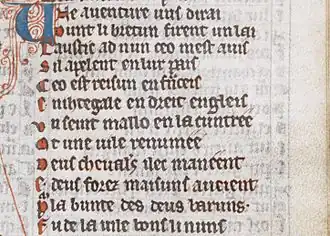 Une auenture uus dirai
Dunt li bretun firent un lai
Laustic ad nun ceo mest auis
Si lapelent en lur pais
Ceo est reisun en f̃nceis
E nihtegale en dreit engleis
En seint mallo en la cuntree
une uile renumee
Deus cheualʼs ilec maneent
E deus forez maisuns aueient
la bunte des deus baruns
Fu de la uile bons li nuns